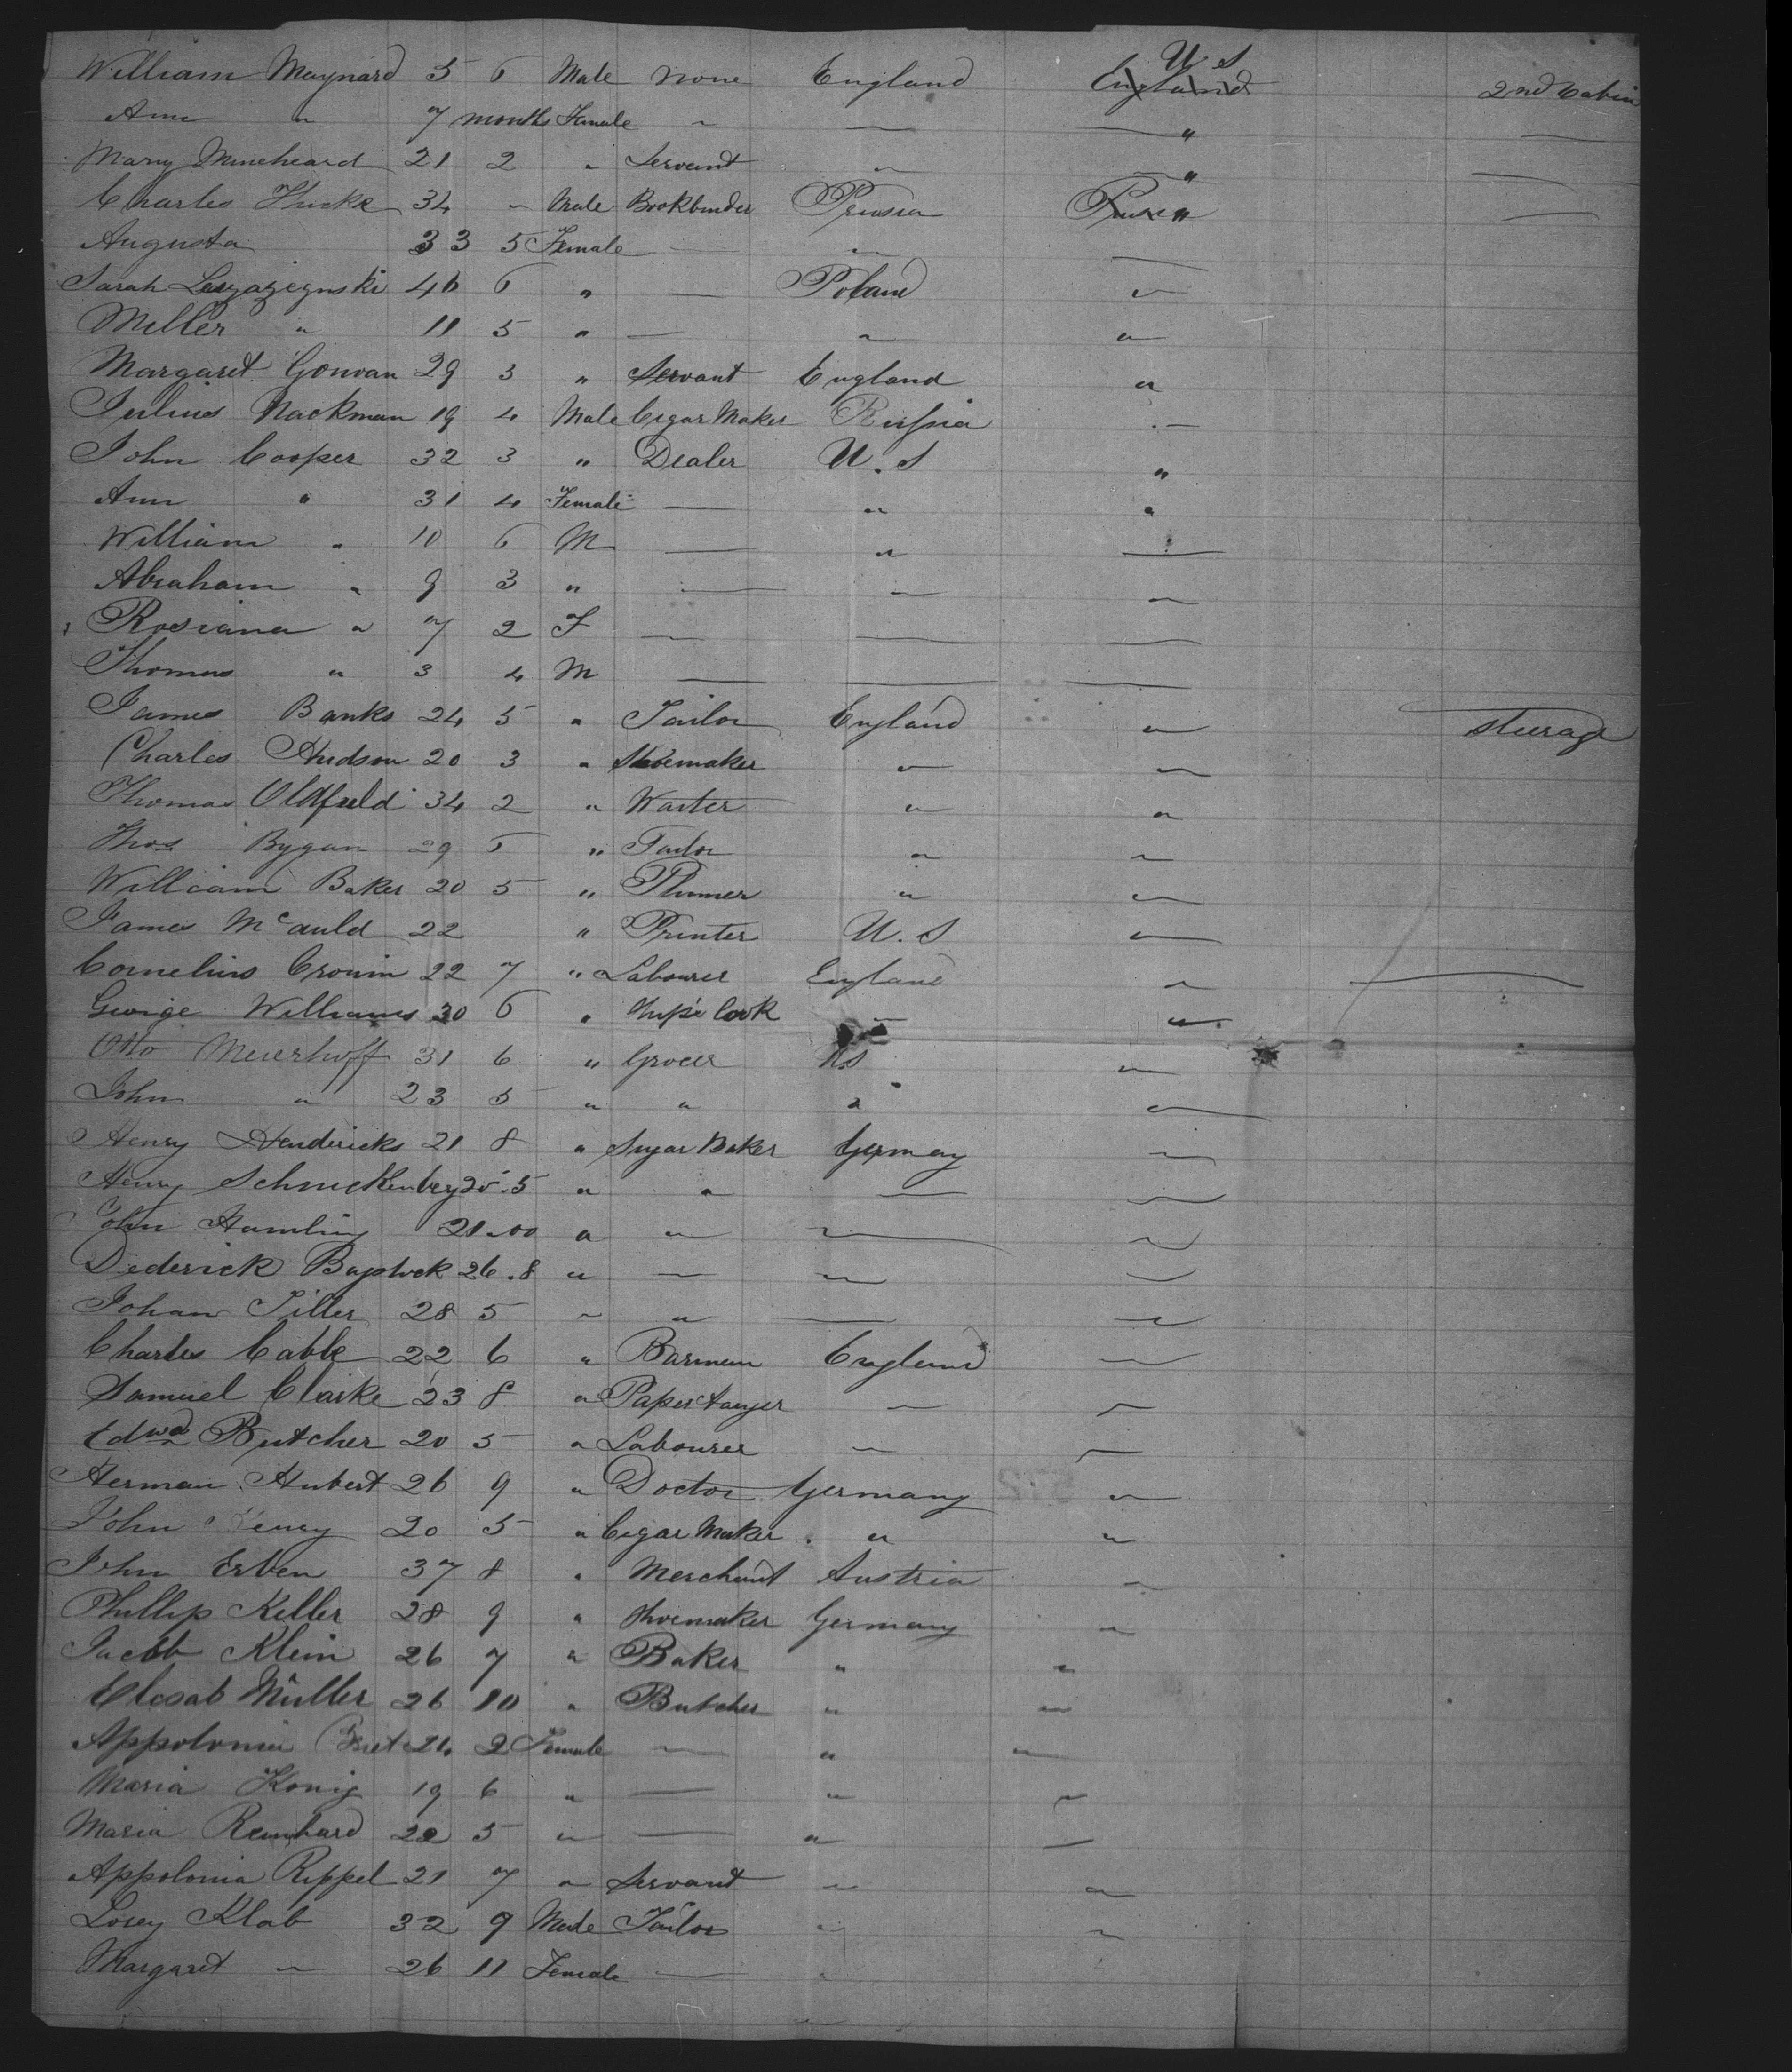 William Maynard 5 6 Male None England U S England 2nd Cabin
Ann " 7 months Female " — — "
Mary Mineheard 21 2 " Servant " — " —
Charles Hucke 34 - Male Bookbinder Prussia Prussia " —
Augusta 33 5 Female — " —
Sarah 46 6 " — Poland "
Miller " 11 5 " — " "
Margaret Gowan 29 3 " Servant England "
Julius Nackman 19 4 Male Cigar Maker Russia " —
John Cooper 32 3 " Dealer U. S "
Ann " 31 4 Female — " "
William " 10 6 M — " —
Abraham " 9 3 " — " "
Rosiana " 7 2 F — — —
Thomas " 3 4 M — — —
James Banks 24 5 " Tailor England " Steerage
Charles Hudson 20 3 " Shoemaker " "
Thomas Oldfield 34 2 " Waiter " "
Thos Bygan 29 6 " Tailor " "
William Baker 20 5 " Plumer " "
James McAuld 22 " Printer U. S "
Cornelius Cronin 22 7 " Labourer England " —
George Williams 30 6 " Ship's Cook " "
Otto Meierhoff 31 6 " Grocer U.S "
John " 23 5 " " " "
Henry Hendericks 21 8 " Sugar Baker Germany "
Henry Schnickenberg 25 . 5 " " — "
John Hamling 21 . 00 " " — "
Diderick 26 . 8 " — " "
Johan Tiller 28 5 " " — "
Charles Cable 22 6 " Barman England "
Samuel Clarke 23 8 " Paper Hanger " "
Edwd Butcher 20 5 " Labourer " "
Herman Hubert 26 9 " Doctor Germany "
John Henry 20 5 " Cigar Maker " "
John Erben 37 8 " Merchant Austria "
Phillip Keller 28 9 " Shoemaker Germany "
Jacob Klein 26 7 " Baker " "
Müller 26 10 " Butcher " "
Appolonia 24 2 Female — " "
Maria Konig 19 6 " — " "
Maria Reinhard 22 5 " — " —
Appolonia Rippel 21 7 " Servant " "
Klab 32 9 Male Tailor " "
Margaret " 26 11 Female — "